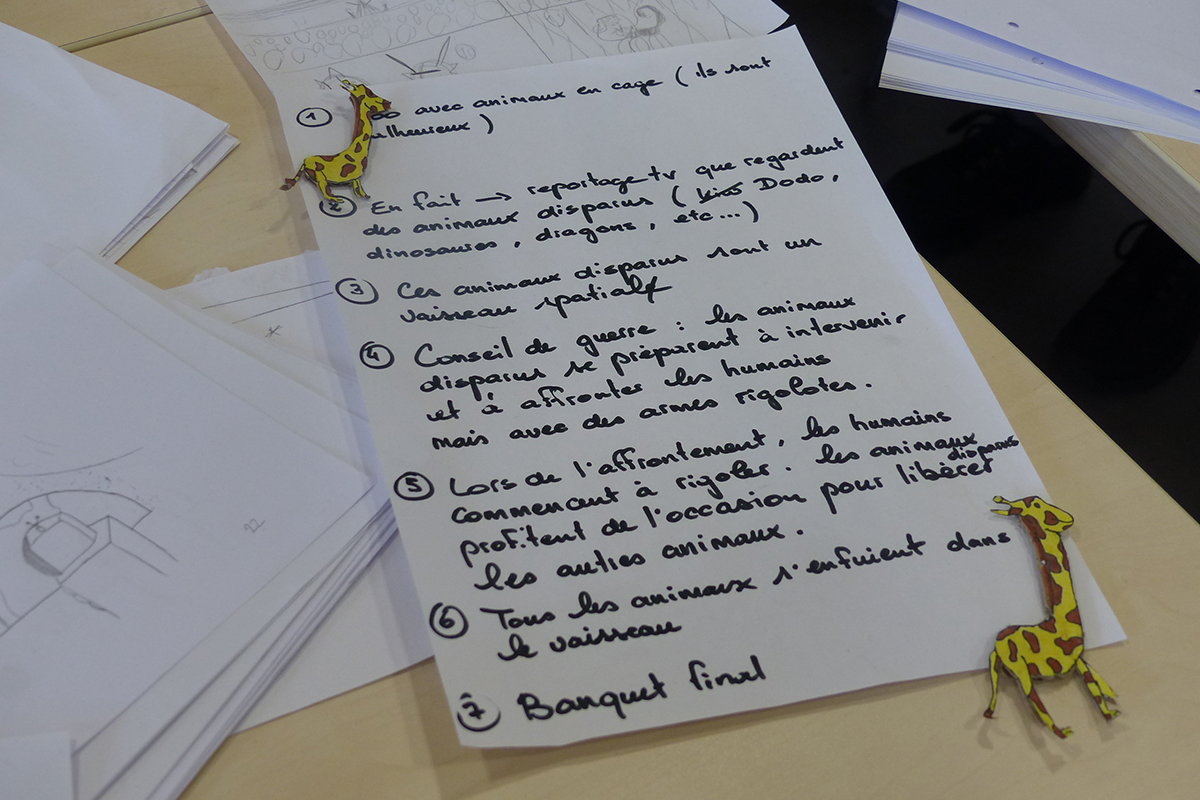 1 oo avec animaux en cage ( ils sont
lheureux )
2 En fait → reportage tv que regardent
des animaux disparus ( Dodo,
dinosaures, dragons, etc... )
3 Ces animaux disparus sont un
vaisseau spatial
4 Conseil de guerre : les animaux
disparus se préparent à intervenir
et à affronter les humains
mais avec des armes rigolotes.
5 Lors de l'affrontement, les humains
commencent à rigoler. les animaux disparus
profitent de l'occasion pour libérer
les autres animaux.
6 Tous les animaux s'enfuient dans
le vaisseau
7 Banquet final